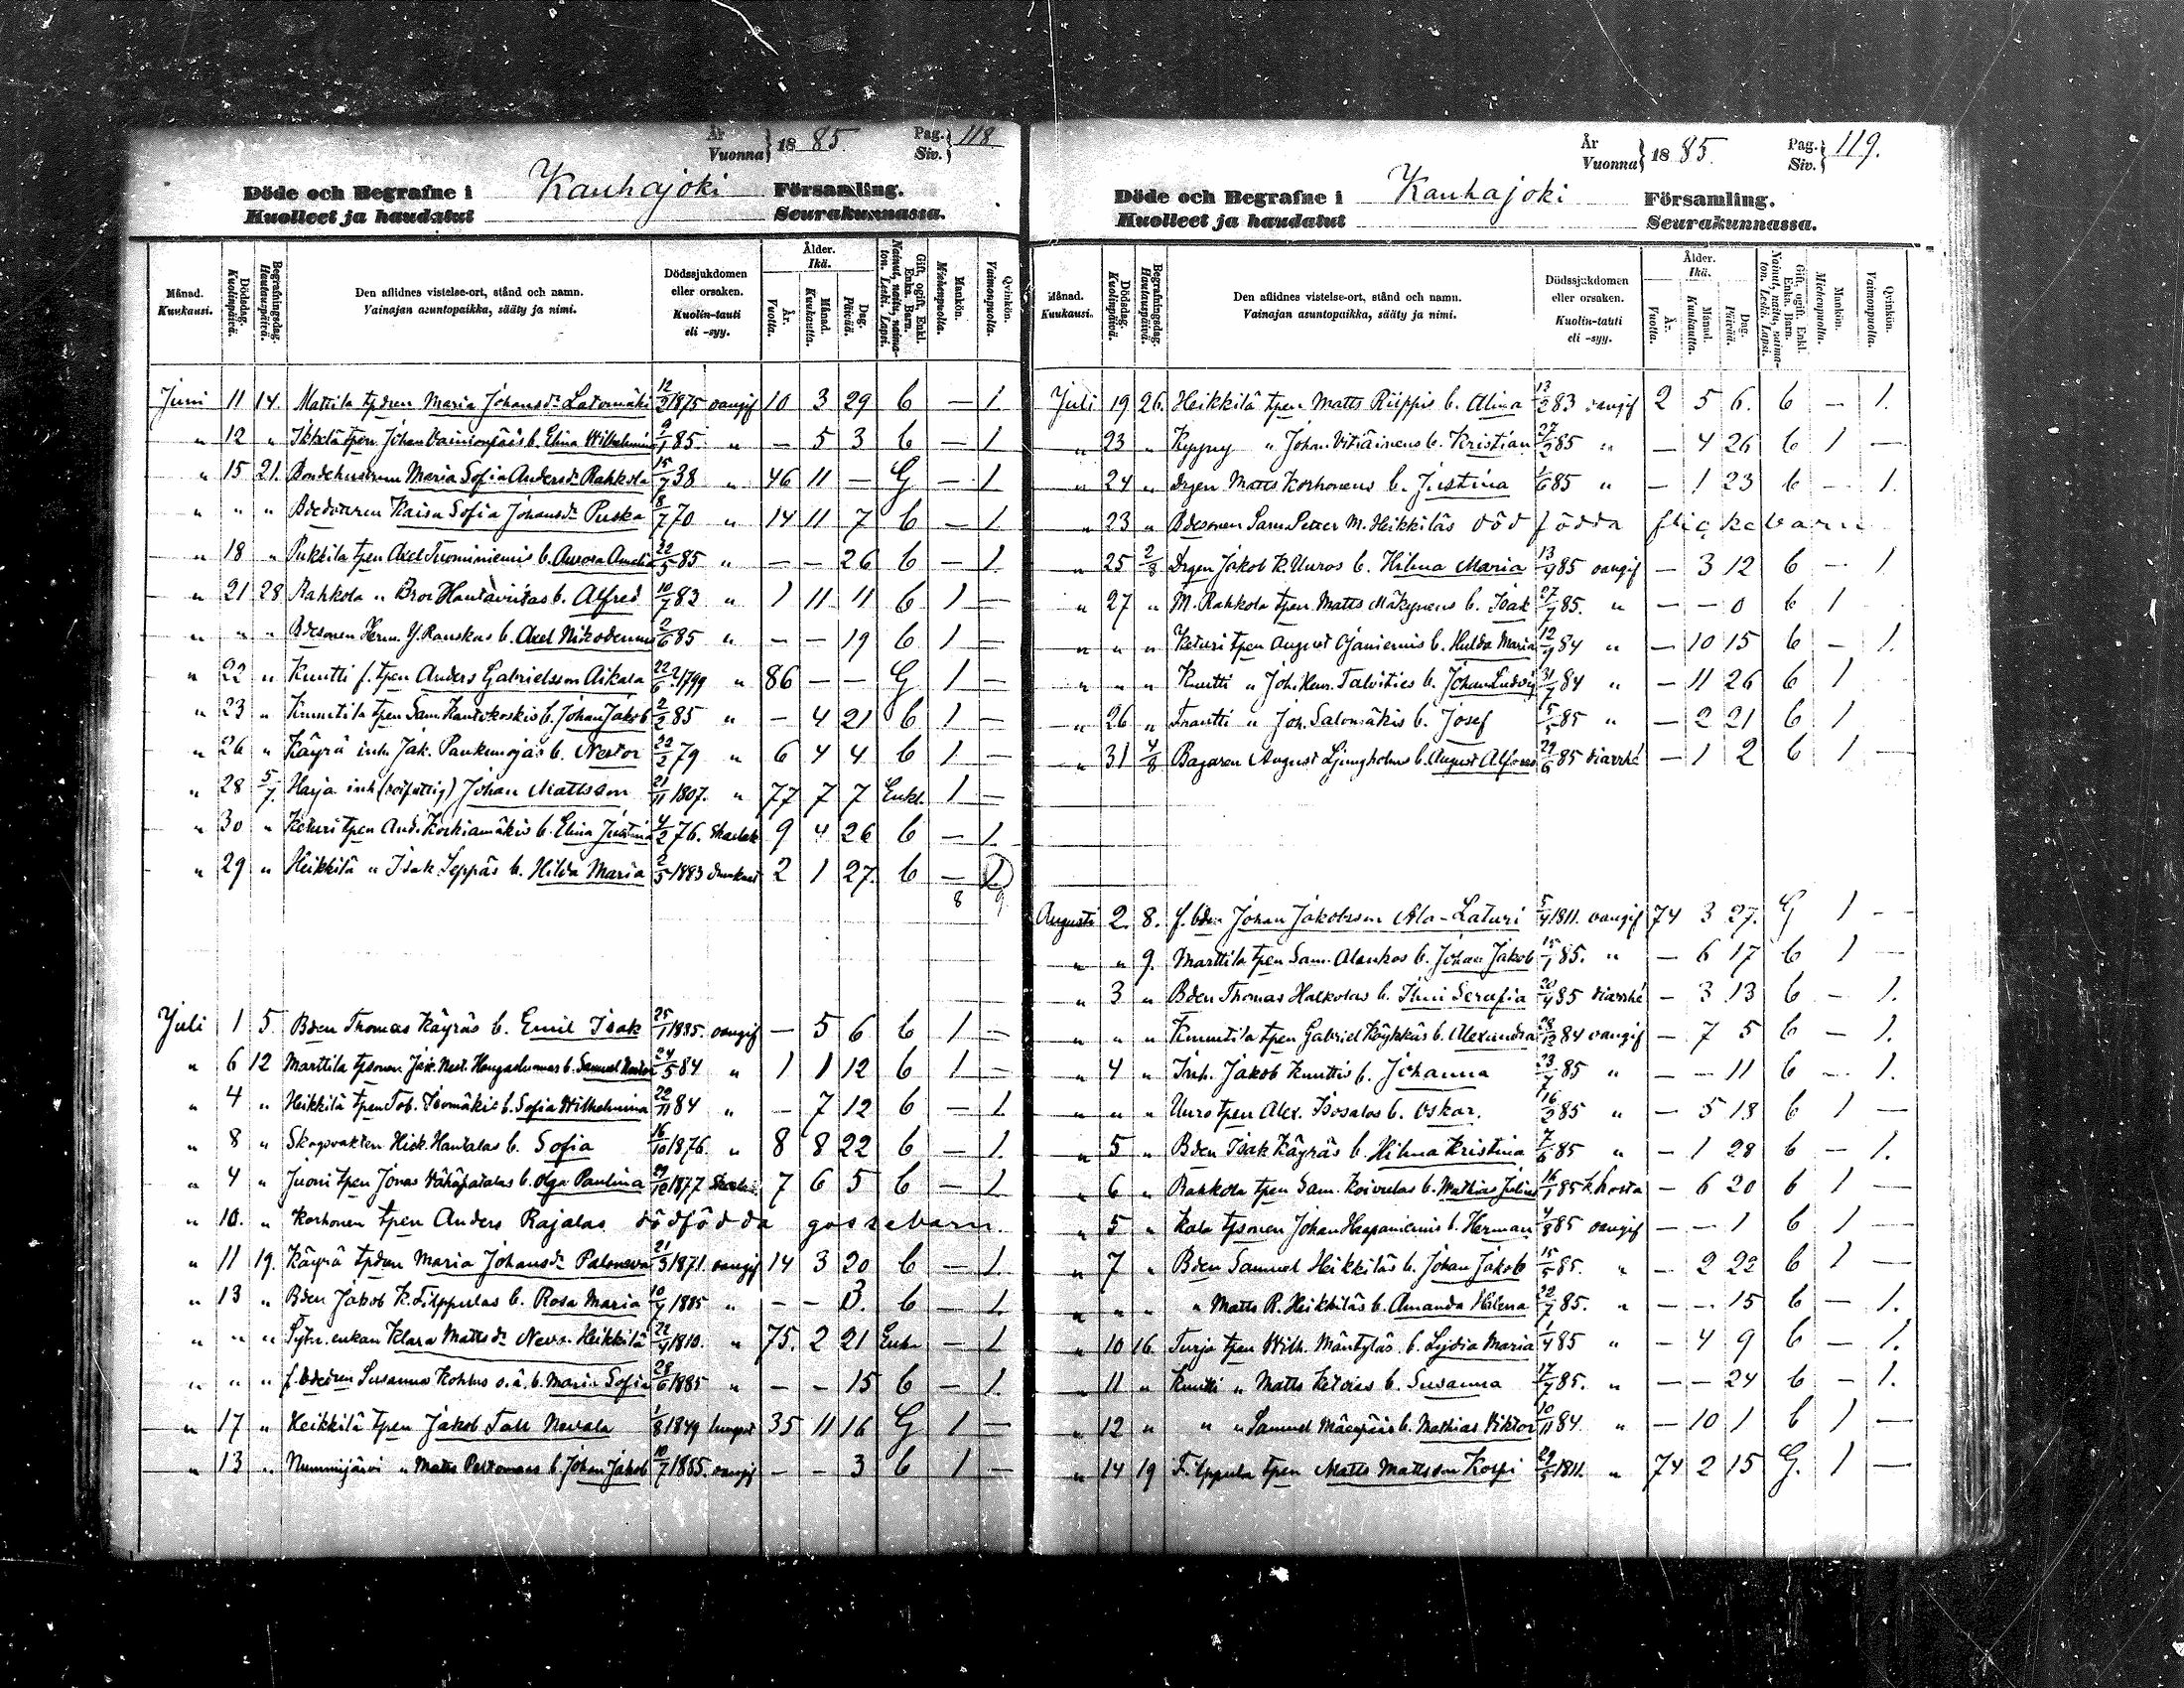 År
Vuonna } 1885.
Pag.
Siv. } 118
Döde och Begrafne i Kauhajoki Församling.
Kuolleet ja haudatut Seurakunnassa.
Månad. Kuukausi.
Dödsdag. Kuolinpäivä.
Begrafningsdag. Hautauspäivä.
Den aflidnes vistelse-ort, stånd och namn.
Vainajan asuntopaikka, sääty ja nimi.
Dödssjukdomen eller orsaken.
Kuolin-tauti eli -syy.
Ålder. Ikä.
År. Vuotta.
Månad. Kuukautta.
Dag. Päivää.
Gift, ogift, Enkl. Enka. Barn.
Nainut, naitu, naimaton. Leski. Lapsi.
Mankön. Miehenpuolta.
Qvinkön. Vaimonpuolta.
Juni 11 14. Mattila tpdren Maria Johansdr Latomäki 12/2 1875 oangif 10 3 29 b — 1
" 12 " Ikkelä tpen Johan Vainionpääs b. Elina Wilhelmina 9/1 85 " — 5 3 b — 1
" 15 21. Bondehustrun Maria Sofia Andersdr Rahkola 15/7 38 " 46 11 — G — 1
" " " Bdedottren Kaisa Sofia Johansdr Puska 8/7 70 " 14 11 7 b — 1
" 18 " Pukkila tpen Axel Tuominiemis b. Aurora Amalia 22/5 85 " — — 26 b — 1
" 21 28 Rahkola " Bror Hautaviitas b. Alfred 10/7 83 " 1 11 11 b 1 —
" " " Bdesonen Herm. Y. Rauskas b. Axel Nikodemus 2/6 85 " — — 19 b 1 —
" 22 " Knutti f. tpen Anders Gabrielsson Aikala 22/6 1799 " 86 — — G 1 —
" 23 " Knuutila tpen Sam. Kautokoskis b. Johan Jakob 2/2 85 " — 4 21 b 1 —
" 26 " Käyrä inh. Jak. Paukunojas b. Nestor 22/2 79 " 6 4 4 b 1 —
" 28 5/7. Harja inh. Johan Mattsson 21/11 1807. " 77 7 7 Enkl. 1 —
" 30 " Keturi tpen And. Koskiamäkis b. Elina Justina 4/2 76. Skarlak 9 4 26 b — 1.
" 29 " Heikkilä " Isak Seppäs b. Hilda Maria 2/5 1883 drunknat 2 1 27. b — 1
8 9
Juli 1 5. Bden Thomas Käyräs b. Emil Isak 25/1 1885. oangif — 5 6 b 1 —
" 6 12 Marttila tpsonen Jak. Nest. b. Samuel Nestor 24/5 84 " 1 1 12 b 1 —
" 4 " Heikkilä tpen Tob. Isomäkis b. Sofia Wilhelmina 22/11 84 " — 7 12 b — 1.
" 8 " Skogsvakten Heik. Hautalas b. Sofia 16/10 1876. " 8 8 22 b — 1.
" 4 " Juoni tpen Jonas Vähäpatalas b. Olga Paulina 29/12 1877 Skarlak 7 6 5 b — 1
" 10. " Korhonen tpen Anders Rajalas dödfödda gossebarn.
" 11 19. Käyrä tpdren Maria Johansdr Paloneva 21/3 1871. oangif 14 3 20 b — 1.
" 13 " Bden Jakob K. Filppulas b. Rosa Maria 10/7 1885 " — — 3. b — 1.
" " " Sytn. enkan Klara Mattsdr Neva-Heikkilä 22/4 1810. " 75. 2 21 Enka — 1
" " " f. bdedren Susanna Kohlus o. ä. b. Maria Sofia 28/6 1885 " — — 15 b — 1.
" 17 " Heikkilä tpen Jakob Tall Nevala 1/8 1849 lungsot 35 11 16 G 1 —
" 13 " Nummijärvi " Matts Peltomaas b. Johan Jakob 10/7 1885. oangif — — 3 b 1 —
År
Vuonna } 1885.
Pag.
Siv. } 119.
Döde och Begrafne i Kauhajoki Församling.
Kuolleet ja haudatut Seurakunnassa.
Månad. Kuukausi.
Dödsdag. Kuolinpäivä.
Begrafningsdag. Hautauspäivä.
Den aflidnes vistelse-ort, stånd och namn.
Vainajan asuntopaikka, sääty ja nimi.
Dödssjukdomen eller orsaken.
Kuolin-tauti eli -syy.
Ålder. Ikä.
År. Vuotta.
Månad. Kuukautta.
Dag. Päivää.
Gift, ogift, Enkl. Enka. Barn.
Nainut, naitu, naimaton. Leski. Lapsi.
Mankön. Miehenpuolta.
Qvinkön. Vaimonpuolta.
Juli 19 26. Heikkilä tpen Matts Riippis b. Alina 13/2 83 oangif 2 5 6. b — 1.
" 23 " Kyyny " Johan Vitiäinens b. Kristian 27/2 85 " — 4 26 b 1 —
" 24 " Drgen Matts Korhonens b. Justina 1/6 85 " — 1 23 b — 1.
" 23 " Bdesonen Sam. Petter M. Heikkiläs död födda flickebarn
" 25 2/8 Drgen Jakob K. Uuros b. Hilma Maria 13/4 85 oangif — 3 12 b — 1
" 27 " M. Rahkola tpen Matts Mäkynens b. Isak 27/7 85. " — — 0 b 1
" " " Keturi tpen August Ojaniemis b. Hulda Maria 12/9 84 " — 10 15 b — 1.
" " " Knutti " Joh. Henr. Talvities b. Johan Ludvig 31/7 84 " — 11 26 b 1
" 26 " Trautti " Joh. Salomäkis b. Josef 5/5 85 " — 2 21 b 1
" 31 4/8 Bagaren August Ljungholms b. August Alfred 29/6 85 diarrhé — 1 2 b 1 —
Augusti 2. 8. f. bden Johan Jakobsson Ala-Laturi 5/4 1811. oangif 74 3 27. G 1 —
" " 9. Marttila tpen Sam. Alankos b. Johan Jakob 15/1 85. " — 6 17 b 1 —
" 3 " Bden Thomas Halkolas b. Ilmi Serafia 20/4 85 diarrhé — 3 13 b — 1.
" " " Knuutila tpen Gabriel Köykkäs b. Alexandra 28/12 84 oangif — 7 5 b — 1.
" 4 " Inh. Jakob Knuttis b. Johanna 23/7 85 " — — 11 b — 1.
" " " Uuro tpen Alex. Isosalos b. Oskar. 16/2 85 " — 5 18 b 1 —
" 5 " Bden Isak Käyräs b. Hilma Kristina 7/6 85 " — 1 28 b — 1.
" 6 " Rahkola tpen Sam. Koivulas b. Mathias Julius 16/1 85 k.hosta — 6 20 b 1 —
" 5 " Kala tpsonen Johan Haapaniemis b. Herman 4/8 85 oangif — — 1 b 1 —
" 7 " Bden Samuel Heikkiläs b. Johan Jakob 15/5 85. " — 2 22 b 1 —
" " " " Matts R. Heikkiläs b. Amanda Helena 22/7 85. " — — 15 b — 1.
" 10 16. Turja tpen Wilh. Mäntyläs b. Lydia Maria 1/4 85 " — 4 9 b — 1.
" 11 " Knutti " Matts Ketolas b. Susanna 17/7 85. " — — 24 b — 1.
" 12 " " " Samuel b. Mathias Viktor 10/11 84 " — 10 1 b 1 —
" 14 19 Filppula tpen Matts Mattsson Korpi 29/5 1811. " 74 2 15 G. 1 —